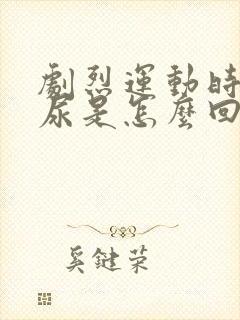 劇烈運動時
尿是怎麼回
奚鍵荣